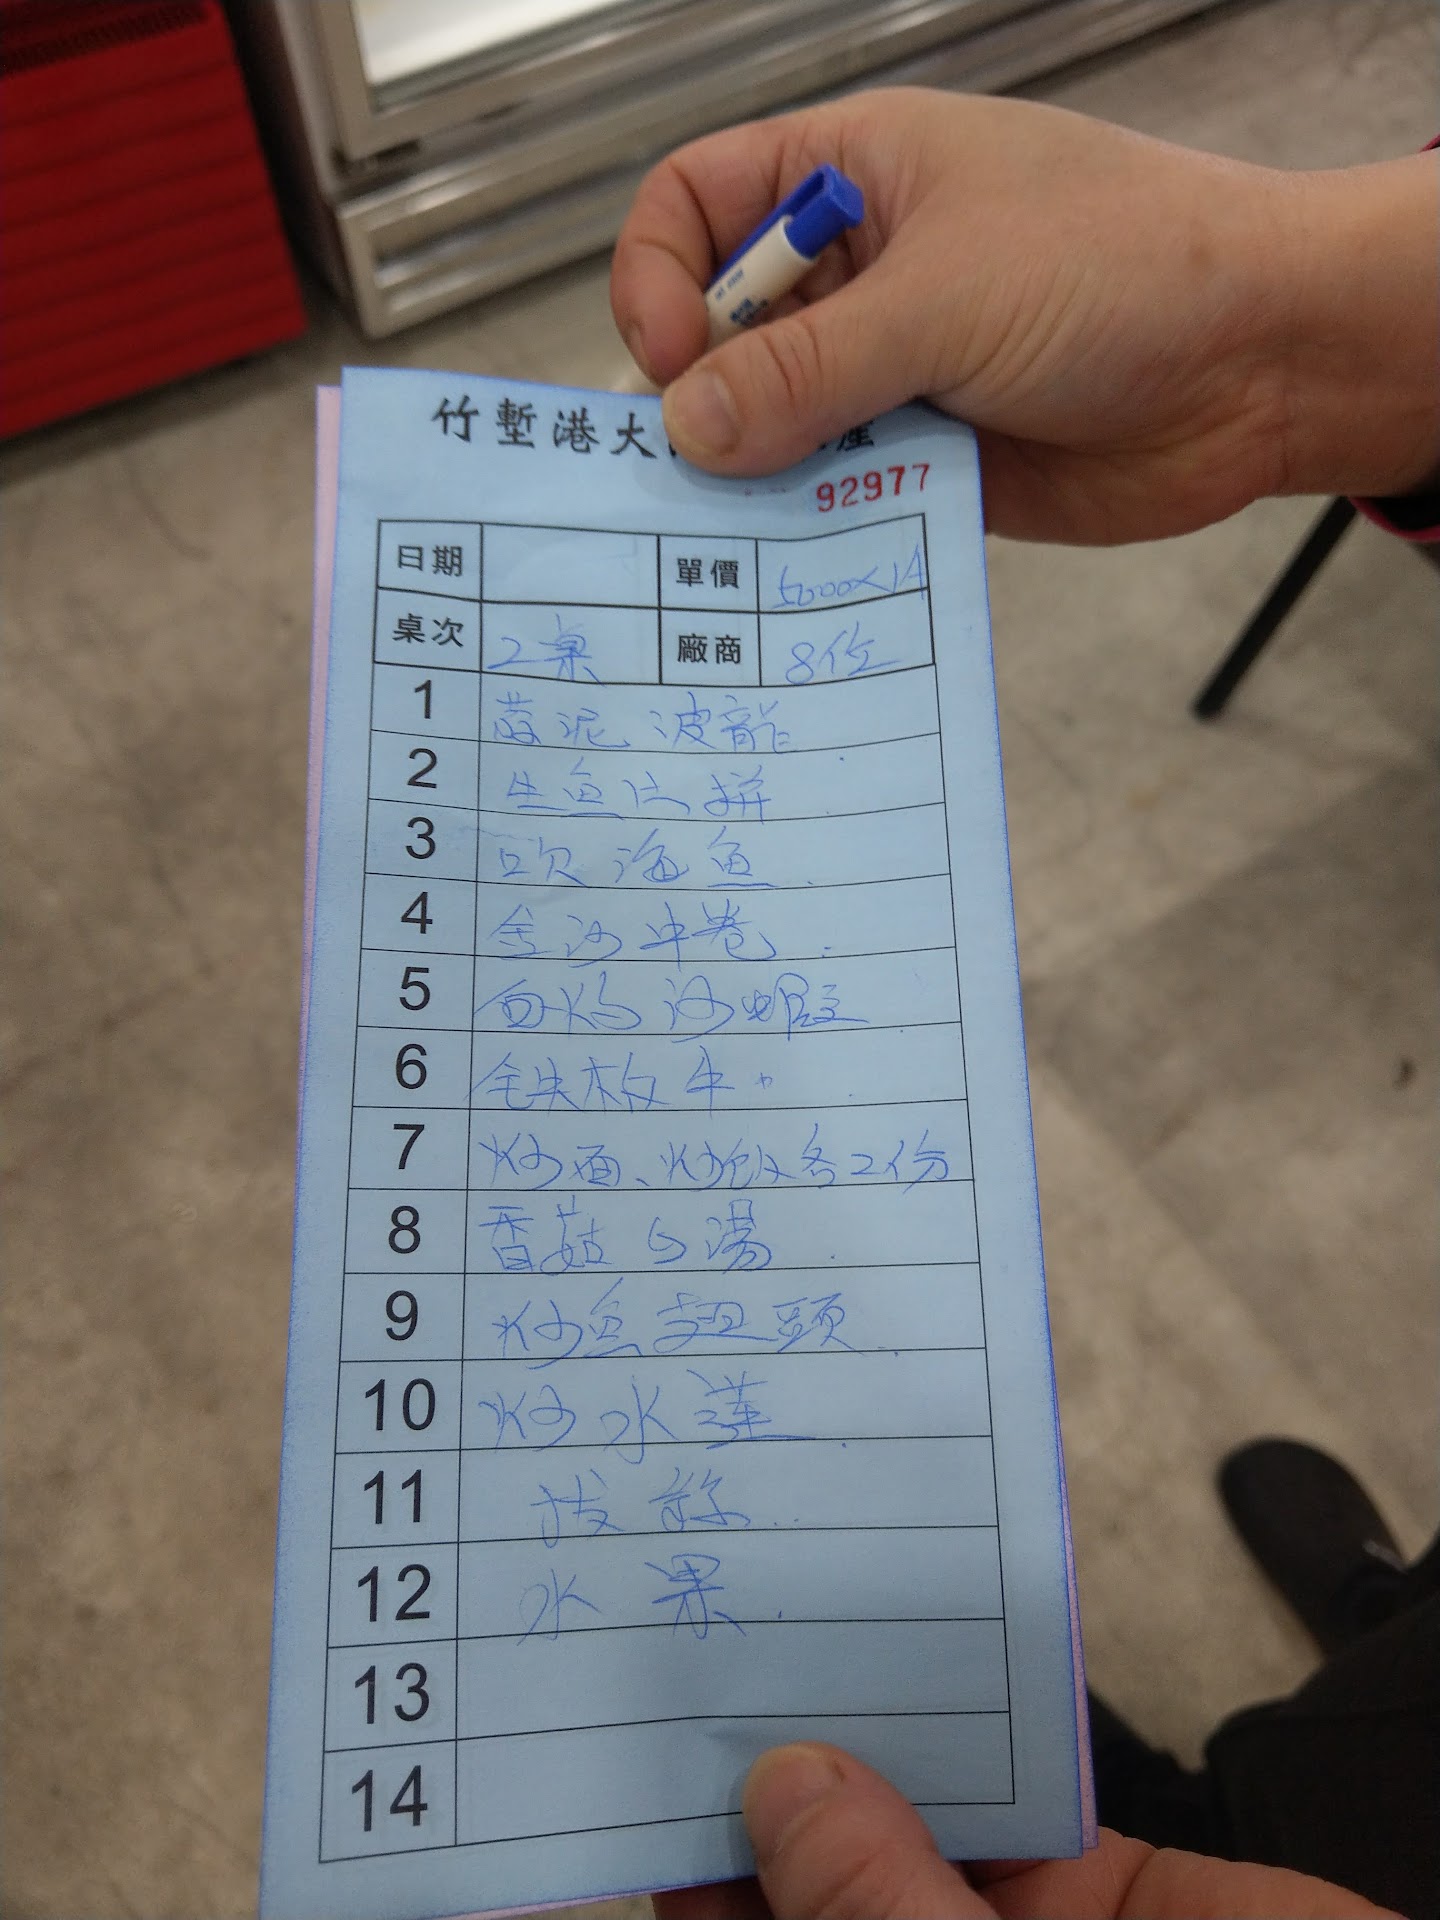 竹塹港大
產
92977
日期 單價 5000×14
桌次 2桌 廠商 8位
1 蒜泥波龍
2 生魚片拼
3 吹海魚
4 金沙中卷
5 焗沙蝦
6 铁板牛
7 炒面、炒飯各2份
8 香菇ㄅ湯
9 炒魚翅頭
10 炒水蓮
11 拔絲
12 水果
13
14